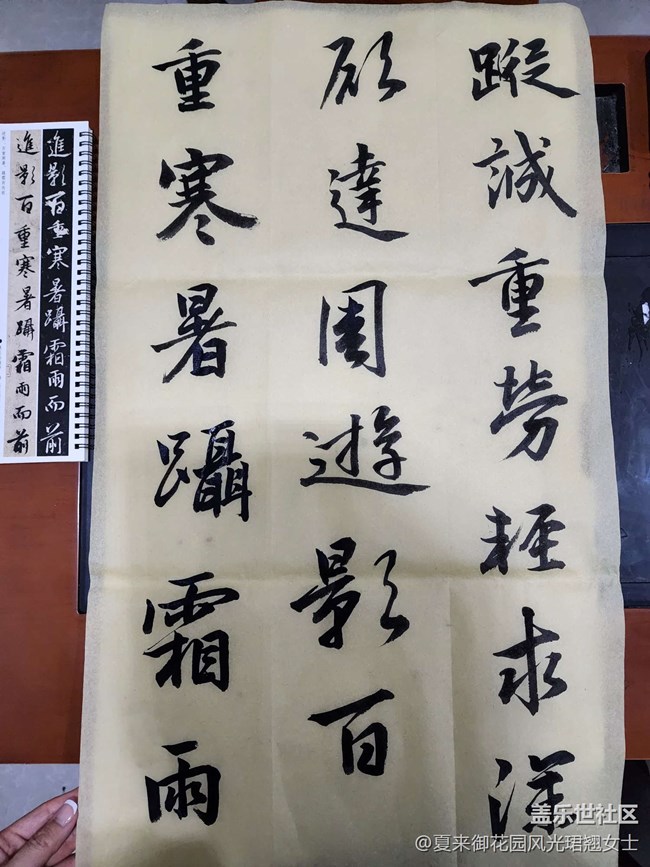 蹤誠重勞輕求深
願達周遊影百
重寒暑躡霜雨
進影百重寒暑躡霜雨而前
進影百重寒暑躡霜雨而前
盖乐世社区
@夏来御花园风光珺翘女士